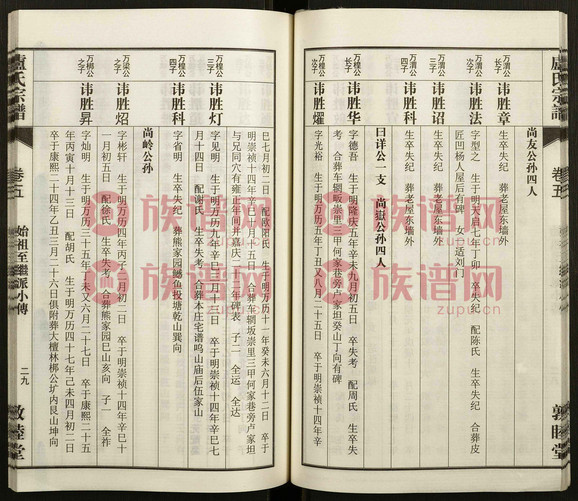 盧氏宗譜
卷五
敦睦堂
尚友公孙四人
万渭公长子
讳胜章
生卒失纪 葬老屋东墙外
万渭公次子
讳胜法
字型之 生于明天启七年丁卯 卒失纪 配陈氏 生卒失纪 合葬皮
匠凹杨人屋后有碑 女一适刘门
万渭公三子
讳胜诏
生卒失纪 葬老屋东墙外
万渭公四子
讳胜科
生卒失纪 葬老屋东墙外
曰详公一支 尚嶽公孙四人
万榜公长子
讳胜华
字德吾 生于明隆庆五年辛未九月初五日 卒失考 配周氏 生卒失
考 合葬车辋坂崇里三甲何家巷旁卢家坦癸山丁向有碑
次子
讳胜耀
字光裕 生于明万历五年丁丑又八月二十五日 卒于明崇祯十四年辛
盧氏宗譜
卷五
始祖至繼派小傳
二九
敦睦堂
巳七月初二日 配欧阳氏 生于明万历十一年癸未六月十二日 卒于
明崇祯十四年辛巳十月十五日 合葬车辋坂崇里三甲何家巷旁卢家坦
与兄同穴有雍正年间并嘉庆二十三年碑表 子二 全运 全达
三子
讳胜灯
字见明 生于明万历九年辛巳三月十三日 卒于明崇祯十四年辛巳七
月十四日 配谢氏 生卒失考 合葬本庄宅谱鸣山庙后伍家山
四子
讳胜科
字省明 生卒失纪 葬熊家园鳙鱼投塘乾山巽向
尚岭公孙
万梁公之子
讳胜炤
字彬轩 生于明万历四年丙子三月初二日 卒于明崇祯十四年辛巳十
一月初五日 配徐氏 生卒失考 合葬熊家园巳山亥向 子一 全祚
万梆公之子
讳胜昇
字灿明 生于明万历三十五年丁未又六月二十七日 卒于康熙二十五
年丙寅十月十三日 配胡氏 生于明万历四十七年己未四月初二日
卒于康熙二十四年乙丑三月二十六日俱附葬大檀林梆公圹内艮山坤向
族谱网
zupu.cn
族谱网
zupu.cn